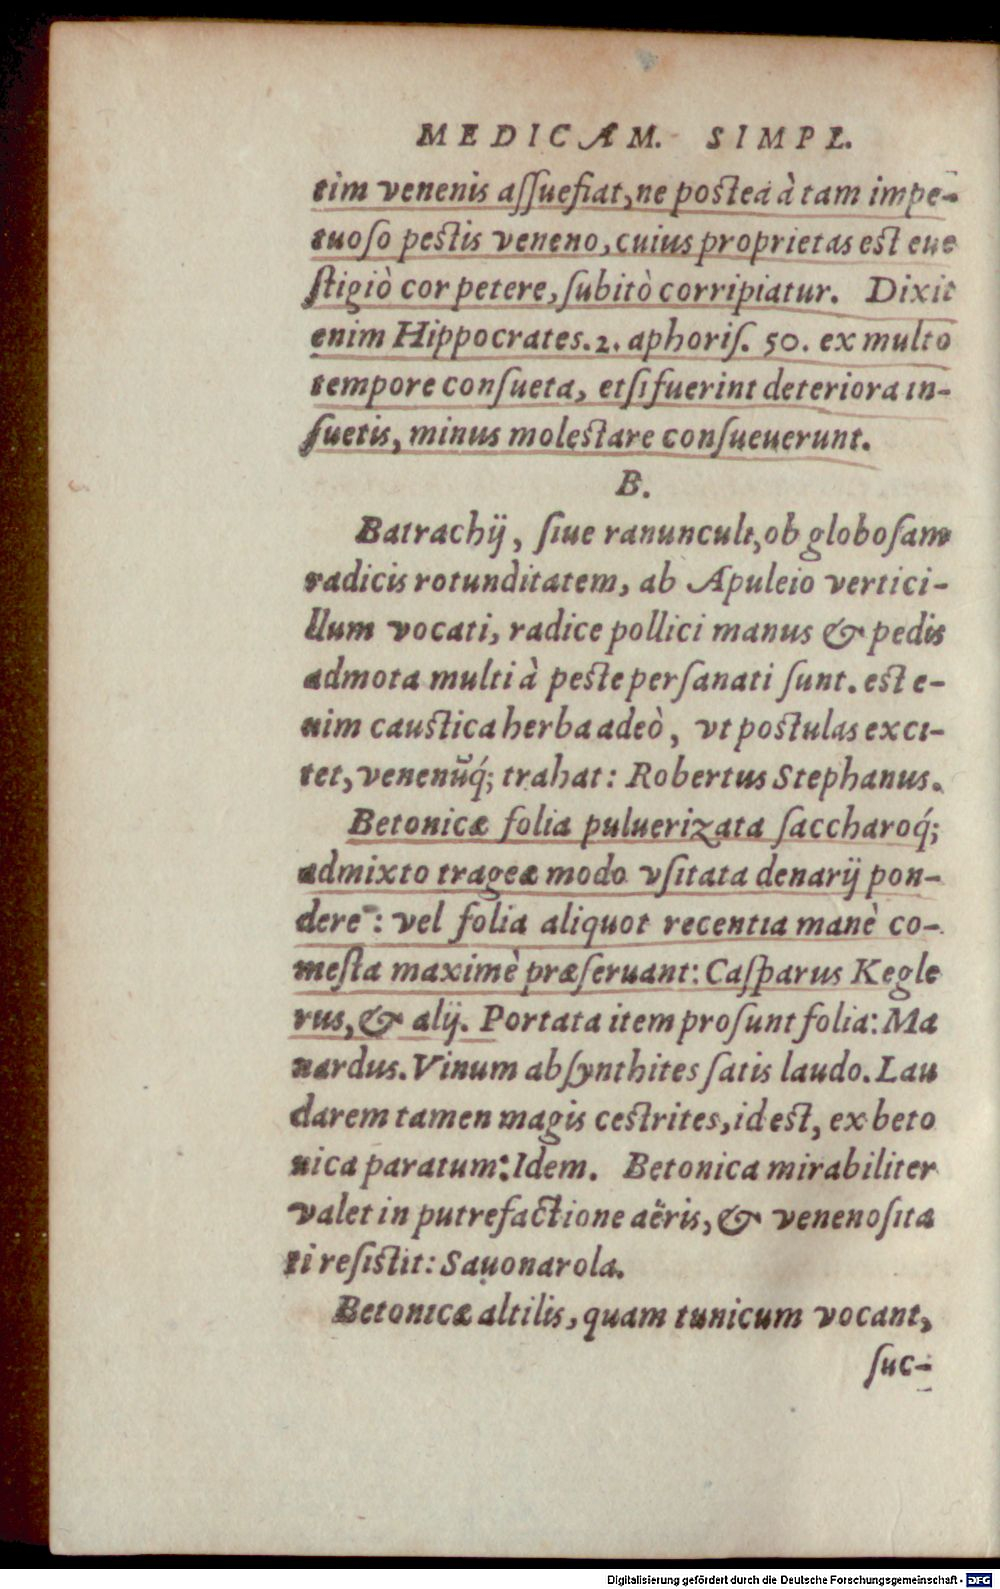 MEDICAM. SIMPL.
tim venenis aſſuefiat, ne posteà à tam impe-
tuoſo pestis veneno, cuius proprietas est eue
ſtigiò cor petere, ſubitò corripiatur. Dixit
enim Hippocrates. 2. aphoriſ. 50. ex multo
tempore conſueta, etſi fuerint deteriora in-
ſuetis, minus molestare conſueuerunt.
B.
Batrachij, ſiue ranunculi, ob globoſam
radicis rotunditatem, ab Apuleio vertici-
llum vocati, radice pollici manus & pedis
admota multi à peste perſanati ſunt. est e-
nim caustica herba adeò, vt postulas exci-
tet, venenũq́; trahat: Robertus Stephanus.
Betonicæ folia puluerizata ſaccharoq́;
admixto trageæ modo vſitata denarij pon-
dere: vel folia aliquot recentia manè co-
meſta maximè præſeruant: Caſparus Kegle
rus, & alij. Portata item proſunt folia: Ma
nardus. Vinum abſynthites ſatis laudo. Lau
darem tamen magis cestrites, id est, ex beto
nica paratum: Idem. Betonica mirabiliter
valet in putrefactione aëris, & venenoſita
ti reſistit: Sauonarola.
Betonicæ altilis, quam tunicum vocant,
ſuc-
Digitalisierung gefördert durch die Deutsche Forschungsgemeinschaft - DFG